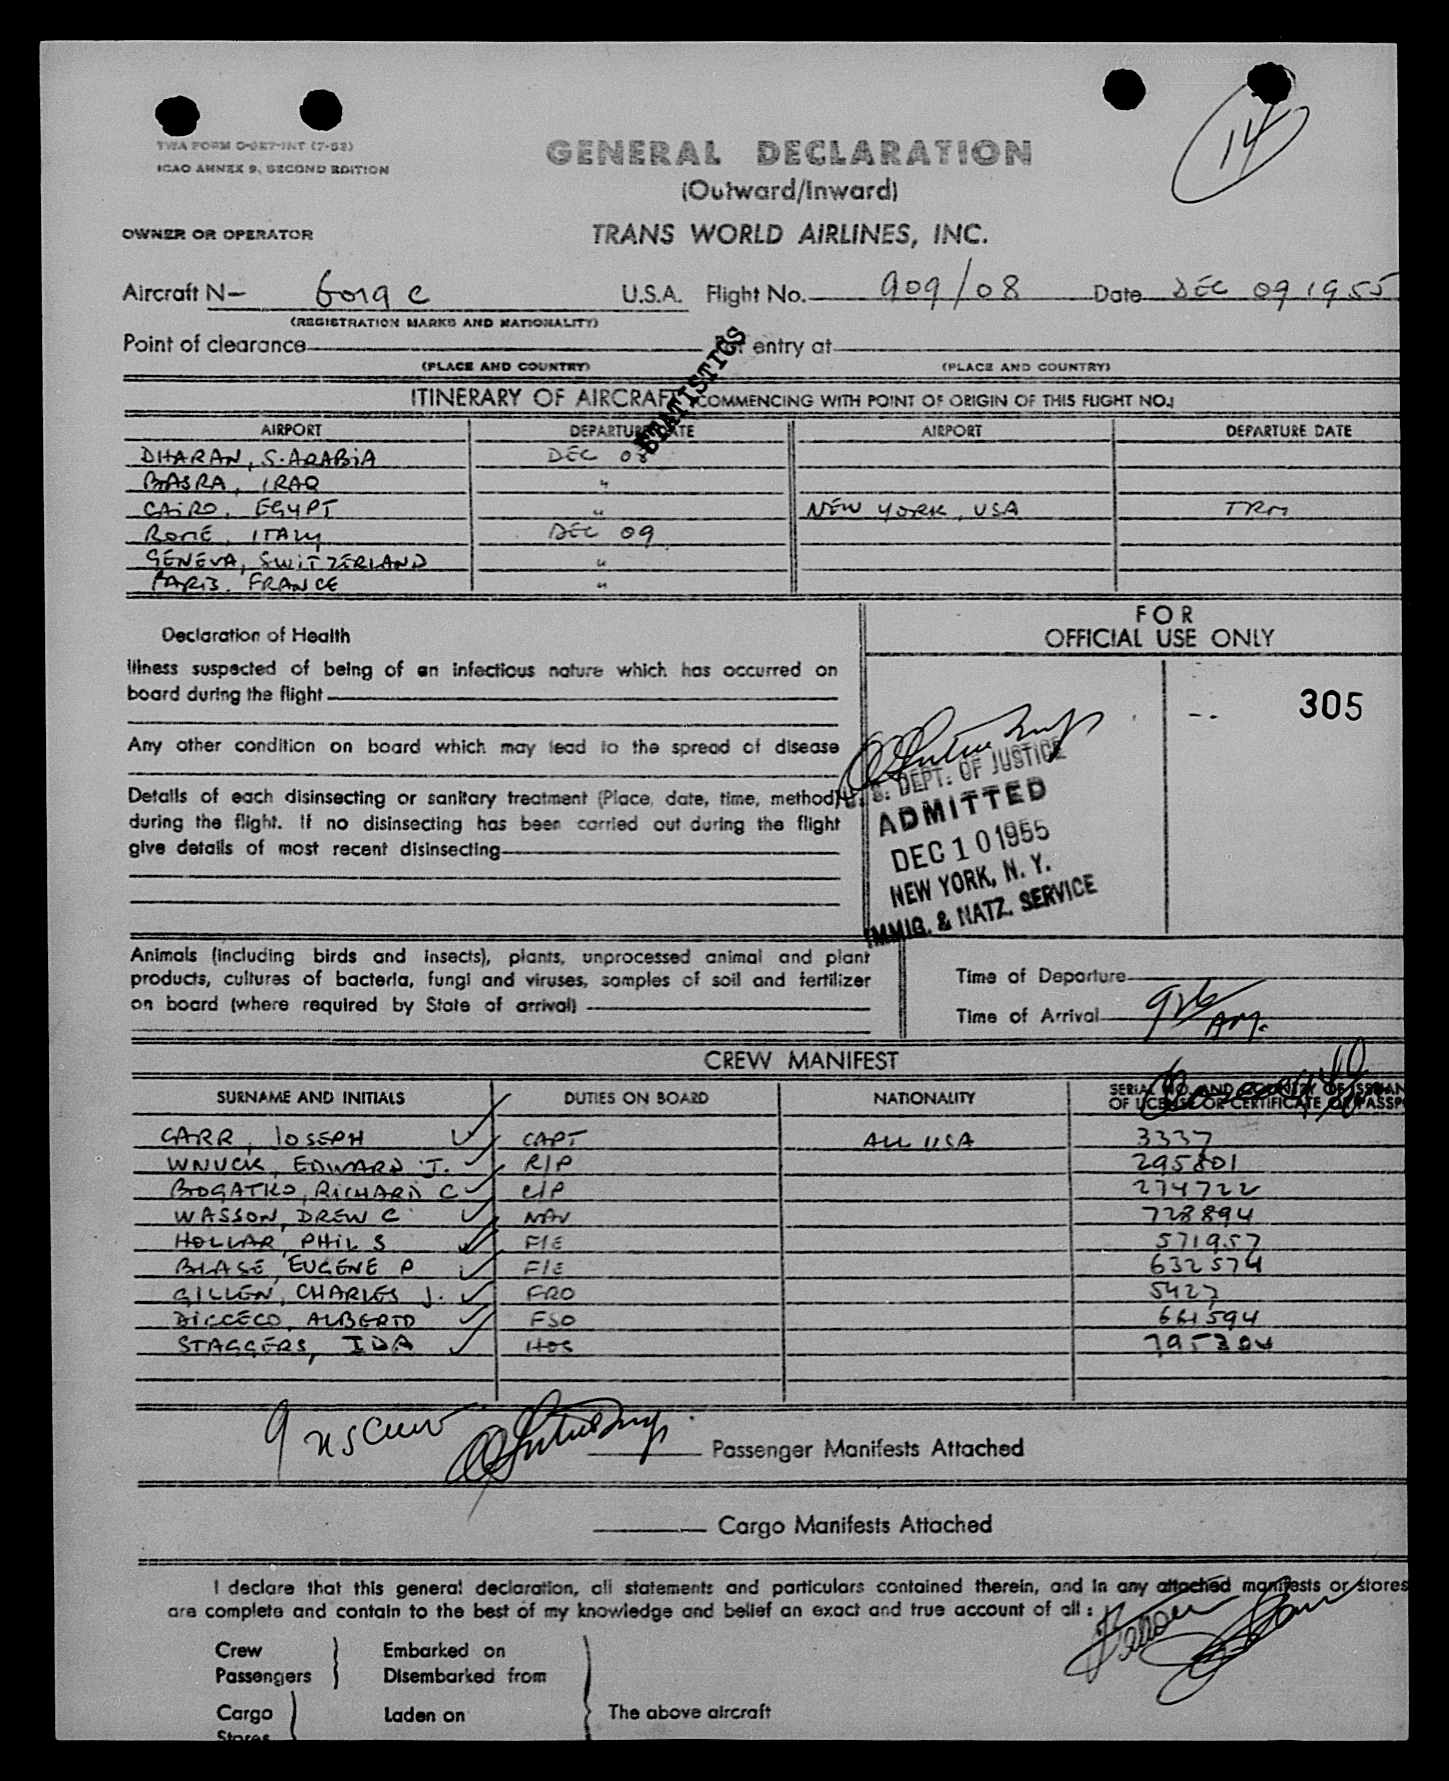 14
TWA FORM O-027-INT (7-53)
ICAO ANNEX 9, SECOND EDITION
GENERAL DECLARATION
(Outward/Inward)
OWNER OR OPERATOR
TRANS WORLD AIRLINES, INC.
Aircraft N- 6019 C U.S.A. Flight No. 909/08 Date DEC 09 1955
(REGISTRATION MARKS AND NATIONALITY)
Point of clearance entry at
STATISTICS
(PLACE AND COUNTRY) (PLACE AND COUNTRY)
ITINERARY OF AIRCRAFT (COMMENCING WITH POINT OF ORIGIN OF THIS FLIGHT NO.)
AIRPORT DEPARTURE DATE AIRPORT DEPARTURE DATE
DHARAN, S. ARABIA DEC 08
BASRA, IRAQ "
CAIRO, EGYPT " NEW YORK, USA TRM
ROME, ITALY DEC 09
GENEVA, SWITZERLAND "
PARIS, FRANCE "
FOR
OFFICIAL USE ONLY
Declaration of Health
Illness suspected of being of an infectious nature which has occurred on
board during the flight
305
Any other condition on board which may lead to the spread of disease
Details of each disinsecting or sanitary treatment (Place, date, time, method)
during the flight. If no disinsecting has been carried out during the flight
give details of most recent disinsecting
U. S. DEPT. OF JUSTICE
ADMITTED
DEC 10 1955
NEW YORK, N. Y.
IMMIG. & NATZ. SERVICE
Animals (including birds and insects), plants, unprocessed animal and plant
products, cultures of bacteria, fungi and viruses, samples of soil and fertilizer
on board (where required by State of arrival)
Time of Departure
Time of Arrival AM.
CREW MANIFEST
SURNAME AND INITIALS DUTIES ON BOARD NATIONALITY SERIAL NO. AND COUNTRY OF ISSUAN
OF LICENSE OR CERTIFICATE OR PASSP
CARR, JOSEPH CAPT ALL USA 3337
WNUCK, EDWARD J. R/P 295801
BOGATKO, RICHARD C C/P 274722
WASSON, DREW C NAV 728894
HOLLAR, PHIL S F/E 571957
BLASE, EUGENE P F/E 632574
GILLEN, CHARLES J. FRO 5427
DICCECO, ALBERTO FSO 661594
STAGGERS, IDA HOS
9 US Crew
Passenger Manifests Attached
Cargo Manifests Attached
I declare that this general declaration, all statements and particulars contained therein, and in any attached manifests or stores
are complete and contain to the best of my knowledge and belief an exact and true account of all :
Crew Embarked on
Passengers Disembarked from
Cargo Laden on The above aircraft
Stores